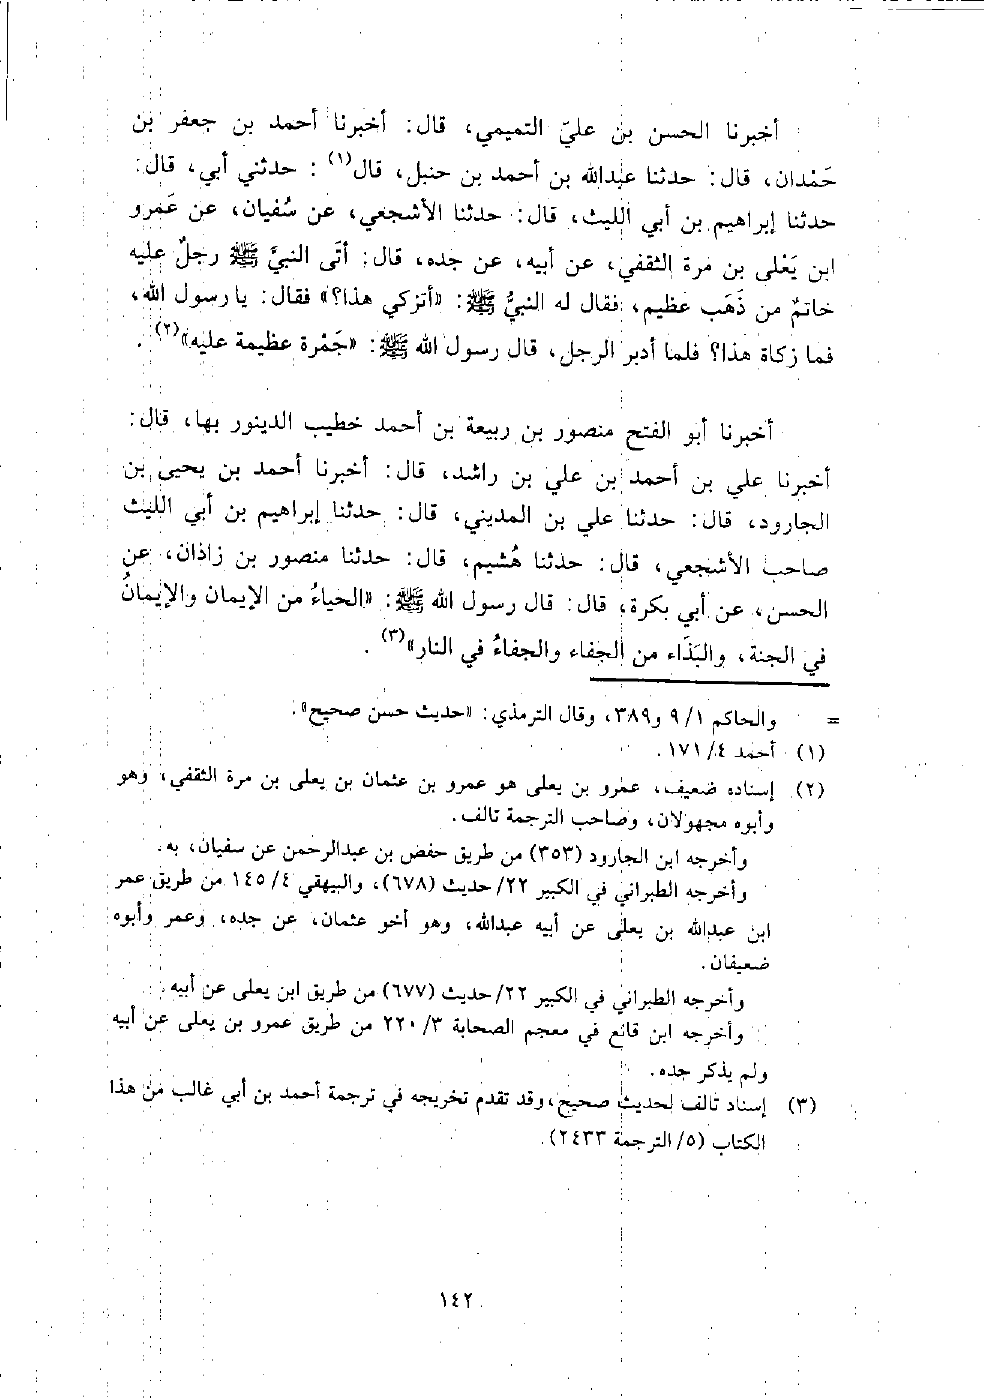 أخبرنا الحسن بن عليّ التميمي، قال: أخبرنا أحمد بن جعفر بن
حَمْدان، قال: حدثنا عبدالله بن أحمد بن حنبل، قال(١) : حدثني أبي، قال:
حدثنا إبراهيم بن أبي الليث، قال: حدثنا الأشجعي، عن سُفيان، عن عَمرو
ابن يَعْلى بن مرة الثقفي، عن أبيه، عن جده، قال: أتَى النبيَّ ﷺ رجلٌ عليه
خاتمٌ من ذَهَب عظيم، فقال له النبيُّ ﷺ: «أتزكي هذا؟» فقال: يا رسول الله،
فما زكاة هذا؟ فلما أدبر الرجل، قال رسول الله ﷺ: «جَمْرة عظيمة عليه»(٢) .
أخبرنا أبو الفتح منصور بن ربيعة بن أحمد خطيب الدينور بها، قال:
أخبرنا علي بن أحمد بن علي بن راشد، قال: أخبرنا أحمد بن يحيى بن
الجارود، قال: حدثنا علي بن المديني، قال: حدثنا إبراهيم بن أبي الليث
صاحب الأشجعي، قال: حدثنا هُشيم، قال: حدثنا منصور بن زاذان، عن
الحسن، عن أبي بكرة، قال: قال رسول الله ﷺ: «الحياءُ من الإيمان والإيمانُ
في الجنة، والبَذَاء من الجفاء والجفاءُ في النار»(٣) .
= والحاكم ١/ ٩ و٣٨٩، وقال الترمذي: «حديث حسن صحيح».
(١) أحمد ٤/ ١٧١ .
(٢) إسناده ضعيف، عمرو بن يعلى هو عمرو بن عثمان بن يعلى بن مرة الثقفي، وهو
وأبوه مجهولان، وصاحب الترجمة تالف.
وأخرجه ابن الجارود (٣٥٣) من طريق حفص بن عبدالرحمن عن سفيان، به.
وأخرجه الطبراني في الكبير ٢٢/ حديث (٦٧٨)، والبيهقي ٤/ ١٤٥ من طريق عمر
ابن عبدالله بن يعلى عن أبيه عبدالله، وهو أخو عثمان، عن جده، وعمر وأبوه
ضعيفان.
وأخرجه الطبراني في الكبير ٢٢/ حديث (٦٧٧) من طريق ابن يعلى عن أبيه.
وأخرجه ابن قانع في معجم الصحابة ٣/ ٢٢٠ من طريق عمرو بن يعلى عن أبيه
ولم يذكر جده.
(٣) إسناد تالف لحديث صحيح، وقد تقدم تخريجه في ترجمة أحمد بن أبي غالب من هذا
الكتاب (٥/ الترجمة ٢٤٣٣).
١٤٢